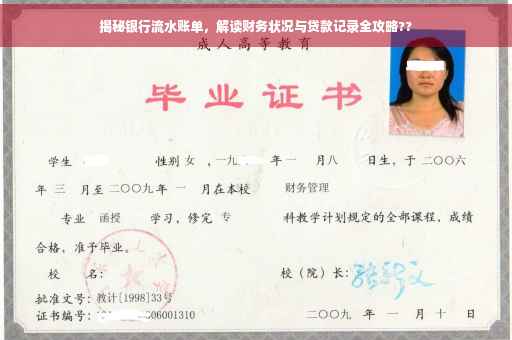 揭秘银行流水账单，解读财务状况与贷款记录全攻略??
成人高等教育
毕业证书
学生 性别 女 ，一九 年 一 月八 日生，于 二〇〇六
年 三 月至 二〇〇九 年 一 月在本校 财务管理
专业 函授 学习，修完 专 科教学计划规定的全部课程，成绩
合格，准予毕业。
校 名： 校（院）长：
批准文号：教计[1998]33号
证书编号： 06001310 二〇〇九 年 一 月 十 日